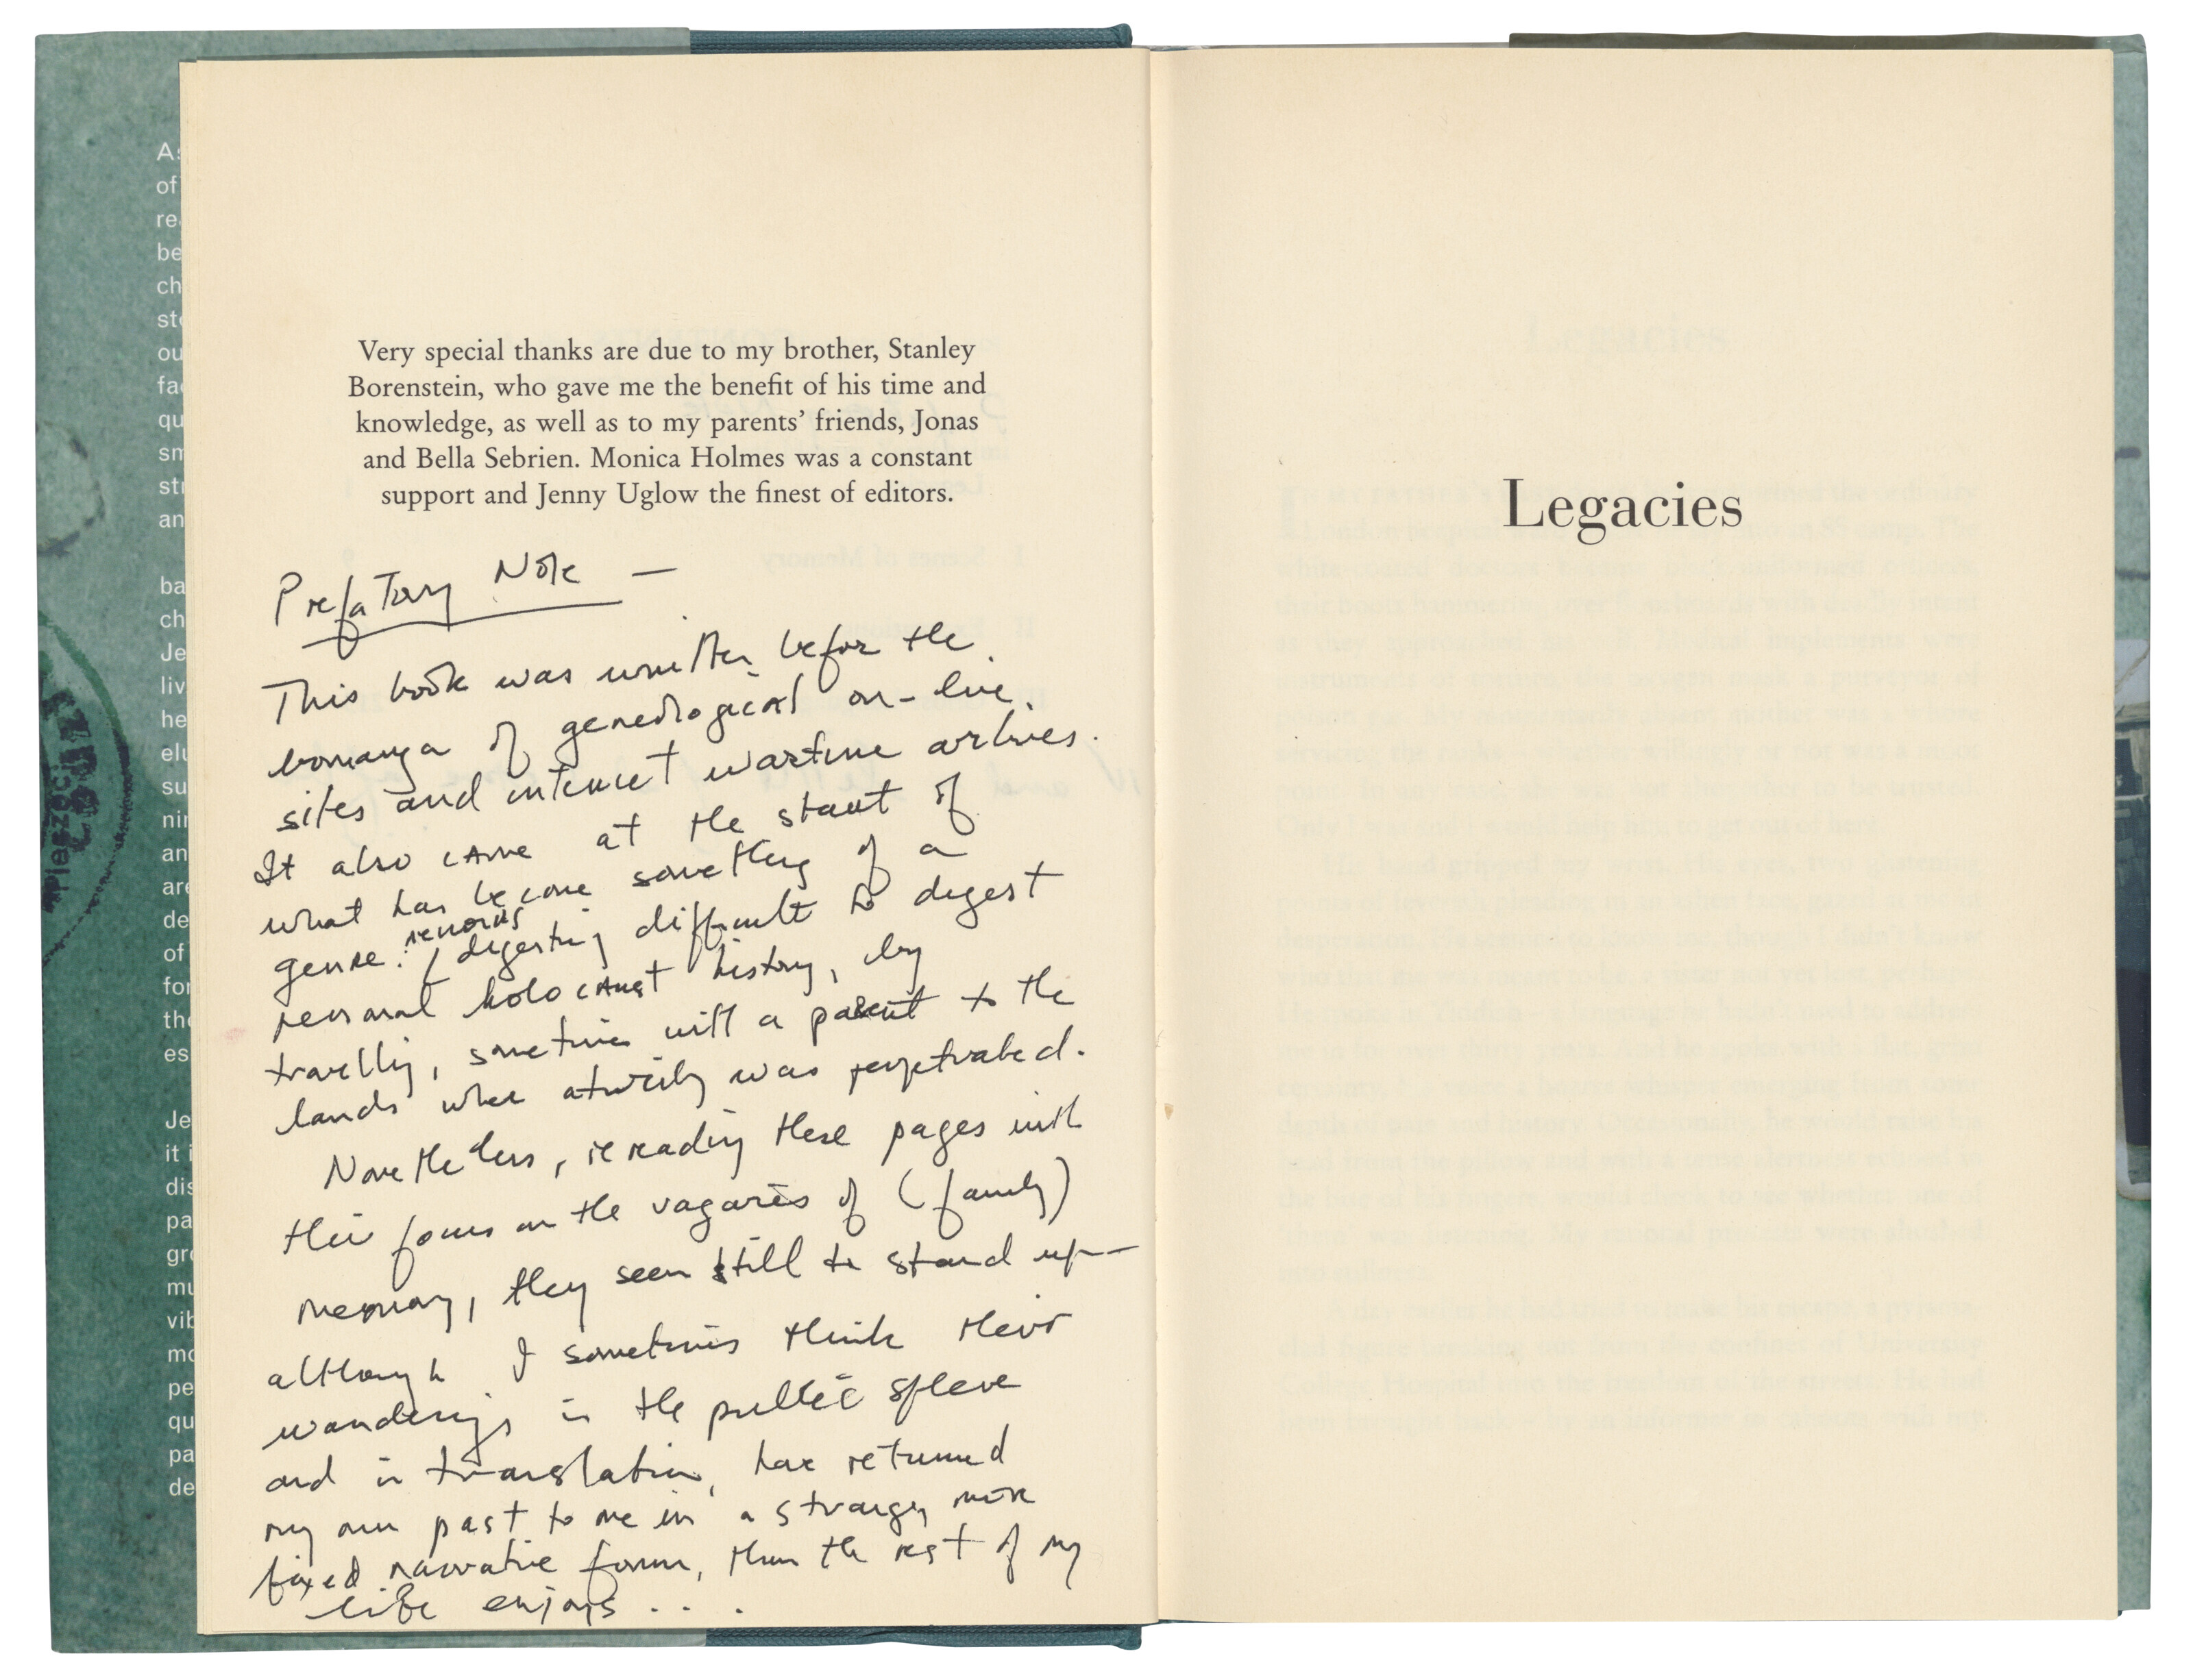 Very special thanks are due to my brother, Stanley
Borenstein, who gave me the benefit of his time and
knowledge, as well as to my parents' friends, Jonas
and Bella Sebrien. Monica Holmes was a constant
support and Jenny Uglow the finest of editors.
Prefatory Note —
This book was written before the
bonanza of genealogical on-line
sites and internet wartime archives.
It also came at the start of
what has become something of a
genre: memoirs
digesting difficult to digest
personal holocaust history, by
travelling, sometimes with a parent to the
lands where atrocity was perpetrated.
Nonetheless, rereading these pages with
their focus on the vagaries of (family)
memory, they seem still to stand up—
although I sometimes think their
wanderings in the public sphere
and in translation, have returned
my own past to me in a stranger, more
fixed narrative form, than the rest of my
life enjoys . . .
Legacies
As
of
re
be
ch
st
ou
fa
qu
sm
str
an
ba
ch
Je
liv
he
elu
su
nin
an
are
de
of
for
the
es
Je
it i
dis
pa
gr
mu
vib
mo
pe
qu
pa
de